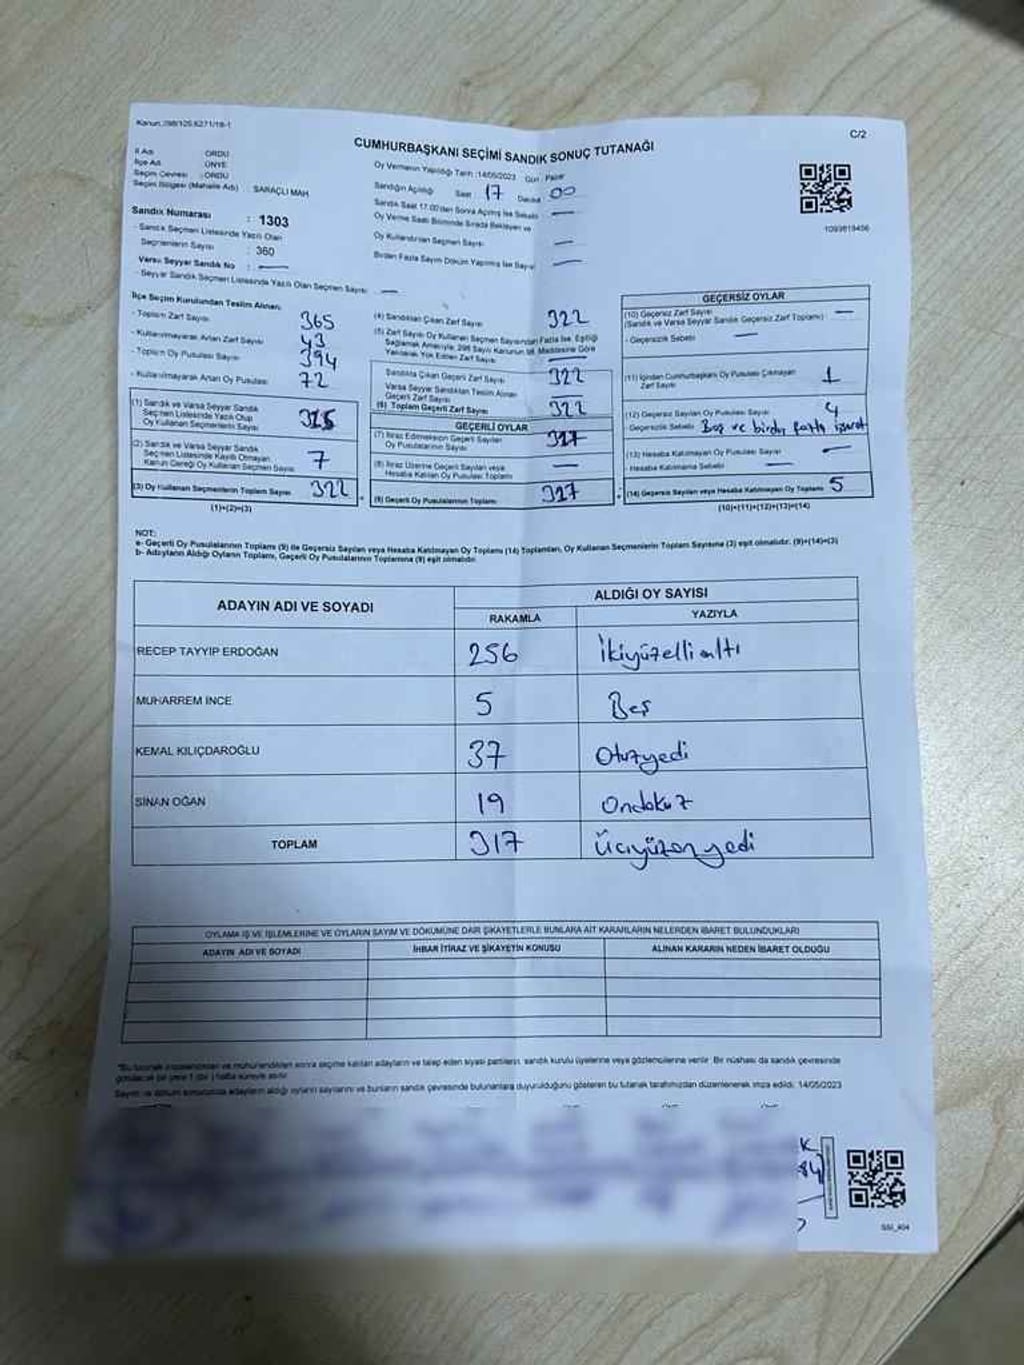 Kanun:298/125,6271/19-1
C/2
CUMHURBAŞKANI SEÇİMİ SANDIK SONUÇ TUTANAĞI
İl Adı : ORDU
İlçe Adı : ÜNYE
Seçim Çevresi : ORDU
Seçim Bölgesi (Mahalle Adı) : SARAÇLI MAH
Sandık Numarası : 1303
- Sandık Seçmen Listesinde Yazılı Olan
Seçmenlerin Sayısı : 360
Varsa Seyyar Sandık No : —
- Seyyar Sandık Seçmen Listesinde Yazılı Olan Seçmen Sayısı : —
Oy Vermenin Yapıldığı Tarih :14/05/2023 Gün : Pazar
Sandığın Açıldığı Saat : 17 Dakika : 00
Sandık Saat 17.00'den Sonra Açılmış İse Sebebi : —
Oy Verme Saati Bitiminde Sırada Bekleyen ve
Oy Kullandırılan Seçmen Sayısı : —
Birden Fazla Sayım Döküm Yapılmış İse Sayısı : —
1093819456
İlçe Seçim Kurulundan Teslim Alınan:
- Toplam Zarf Sayısı : 365
- Kullanılmayarak Artan Zarf Sayısı : 43
- Toplam Oy Pusulası Sayısı : 394
- Kullanılmayarak Artan Oy Pusulası : 72
(1) Sandık ve Varsa Seyyar Sandık
Seçmen Listesinde Yazılı Olup
Oy Kullanan Seçmenlerin Sayısı : 315
(2) Sandık ve Varsa Seyyar Sandık
Seçmen Listesinde Kayıtlı Olmayan
Kanun Gereği Oy Kullanan Seçmen Sayısı : 7
(3) Oy Kullanan Seçmenlerin Toplam Sayısı : 322
(1)+(2)=(3)
(4) Sandıktan Çıkan Zarf Sayısı : 322
(5) Zarf Sayısı Oy Kullanan Seçmen Sayısından Fazla İse, Eşitliği
Sağlamak Amacıyla, 298 Sayılı Kanunun Maddesine Göre
Yakılarak Yok Edilen Zarf Sayısı : —
Sandıkta Çıkan Geçerli Zarf Sayısı : 322
Varsa Seyyar Sandıktan Teslim Alınan
Geçerli Zarf Sayısı : —
(6) Toplam Geçerli Zarf Sayısı : 322
GEÇERLİ OYLAR
(7) İtiraz Edilmeksizin Geçerli Sayılan
Oy Pusulalarının Sayısı : 317
(8) İtiraz Üzerine Geçerli Sayılan veya
Hesaba Katılan Oy Pusulası Toplamı : —
(9) Geçerli Oy Pusulalarının Toplamı : 317
GEÇERSİZ OYLAR
(10) Geçersiz Zarf Sayısı : —
(Sandık ve Varsa Seyyar Sandık Geçersiz Zarf Toplamı)
- Geçersizlik Sebebi : —
(11) İçinden Cumhurbaşkanı Oy Pusulası Çıkmayan
Zarf Sayısı : 1
(12) Geçersiz Sayılan Oy Pusulası Sayısı : 4
- Geçersizlik Sebebi : Boş ve birden fazla işaret
(13) Hesaba Katılmayan Oy Pusulası Sayısı : —
- Hesaba Katılmama Sebebi : —
(14) Geçersiz Sayılan veya Hesaba Katılmayan Oy Toplamı : 5
(10)+(11)+(12)+(13)=(14)
NOT:
a- Geçerli Oy Pusulalarının Toplamı (9) ile Geçersiz Sayılan veya Hesaba Katılmayan Oy Toplamı (14) Toplamları, Oy Kullanan Seçmenlerin Toplam Sayısına (3) eşit olmalıdır. (9)+(14)=(3)
b- Adayların Aldığı Oyların Toplamı, Geçerli Oy Pusulalarının Toplamına (9) eşit olmalıdır.
ADAYIN ADI VE SOYADI
ALDIĞI OY SAYISI
RAKAMLA YAZIYLA
RECEP TAYYİP ERDOĞAN 256 İkiyüzellialtı
MUHARREM İNCE 5 Beş
KEMAL KILIÇDAROĞLU 37 Otuzyedi
SİNAN OĞAN 19 Ondokuz
TOPLAM 317 Üçyüzonyedi
OYLAMA İŞ VE İŞLEMLERİNE VE OYLARIN SAYIM VE DÖKÜMÜNE DAİR ŞİKAYETLERLE BUNLARA AİT KARARLARIN NELERDEN İBARET BULUNDUKLARI
ADAYIN ADI VE SOYADI İHBAR İTİRAZ VE ŞİKAYETİN KONUSU ALINAN KARARIN NEDEN İBARET OLDUĞU
*Bu tutanak imzalandıktan ve mühürlendikten sonra seçime katılan adayların ve talep eden siyasi partilerin, sandık kurulu üyelerine veya gözlemcilerine verilir. Bir nüshası da sandık çevresinde
görülecek bir yere 1 (bir) hafta süreyle asılır.
Sayım ve döküm sonucunda adayların aldığı oyların sayılarını ve bunların sandık çevresinde bulunanlara duyurulduğunu gösteren bu tutanak tarafımızdan düzenlenerek imza edildi. 14/05/2023
SSI_404